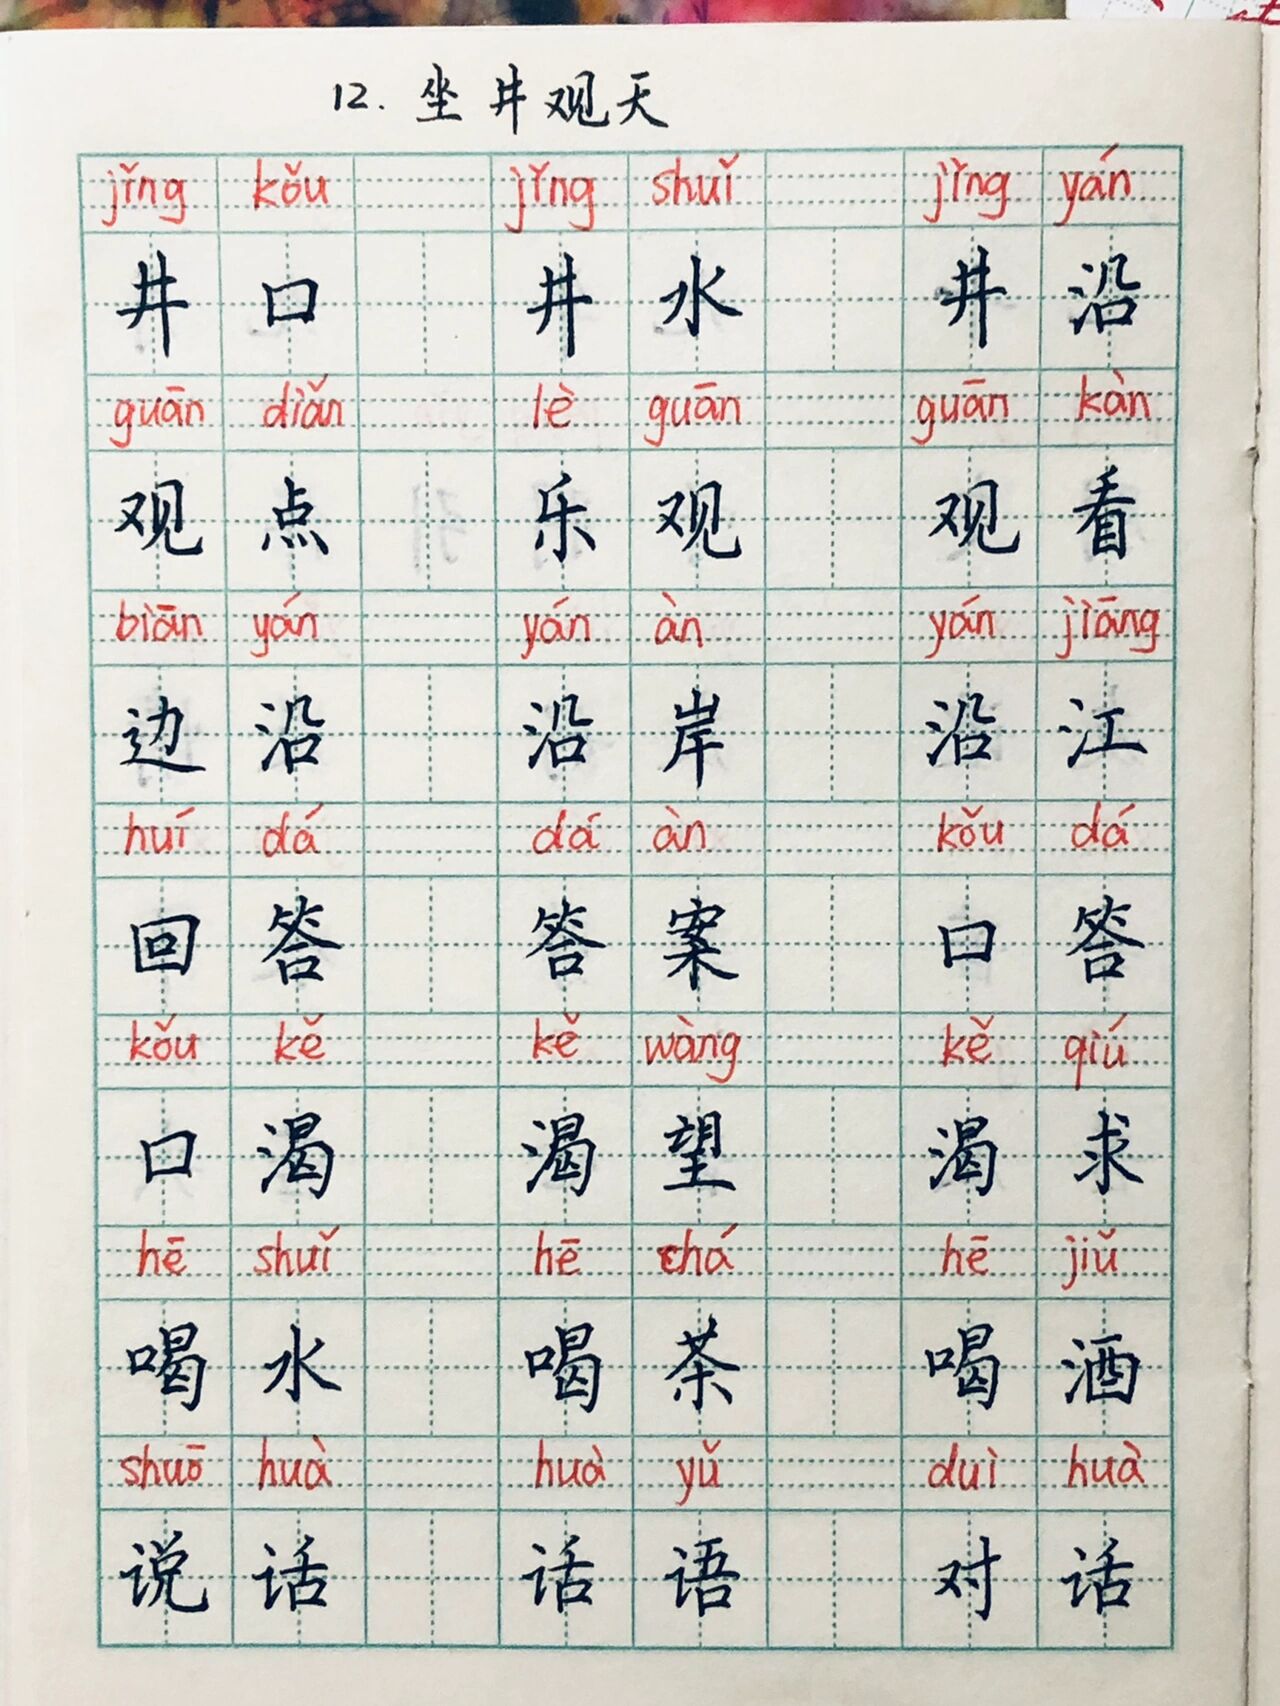 12. 坐井观天
jǐng kǒu jǐng shuǐ jǐng yán
井口 井水 井沿
guān diǎn lè guān guān kàn
观点 乐观 观看
biān yán yán àn yán jiāng
边沿 沿岸 沿江
huí dá dá àn kǒu dá
回答 答案 口答
kǒu kě kě wàng kě qiú
口渴 渴望 渴求
hē shuǐ hē chá hē jiǔ
喝水 喝茶 喝酒
shuō huà huà yǔ duì huà
说话 话语 对话